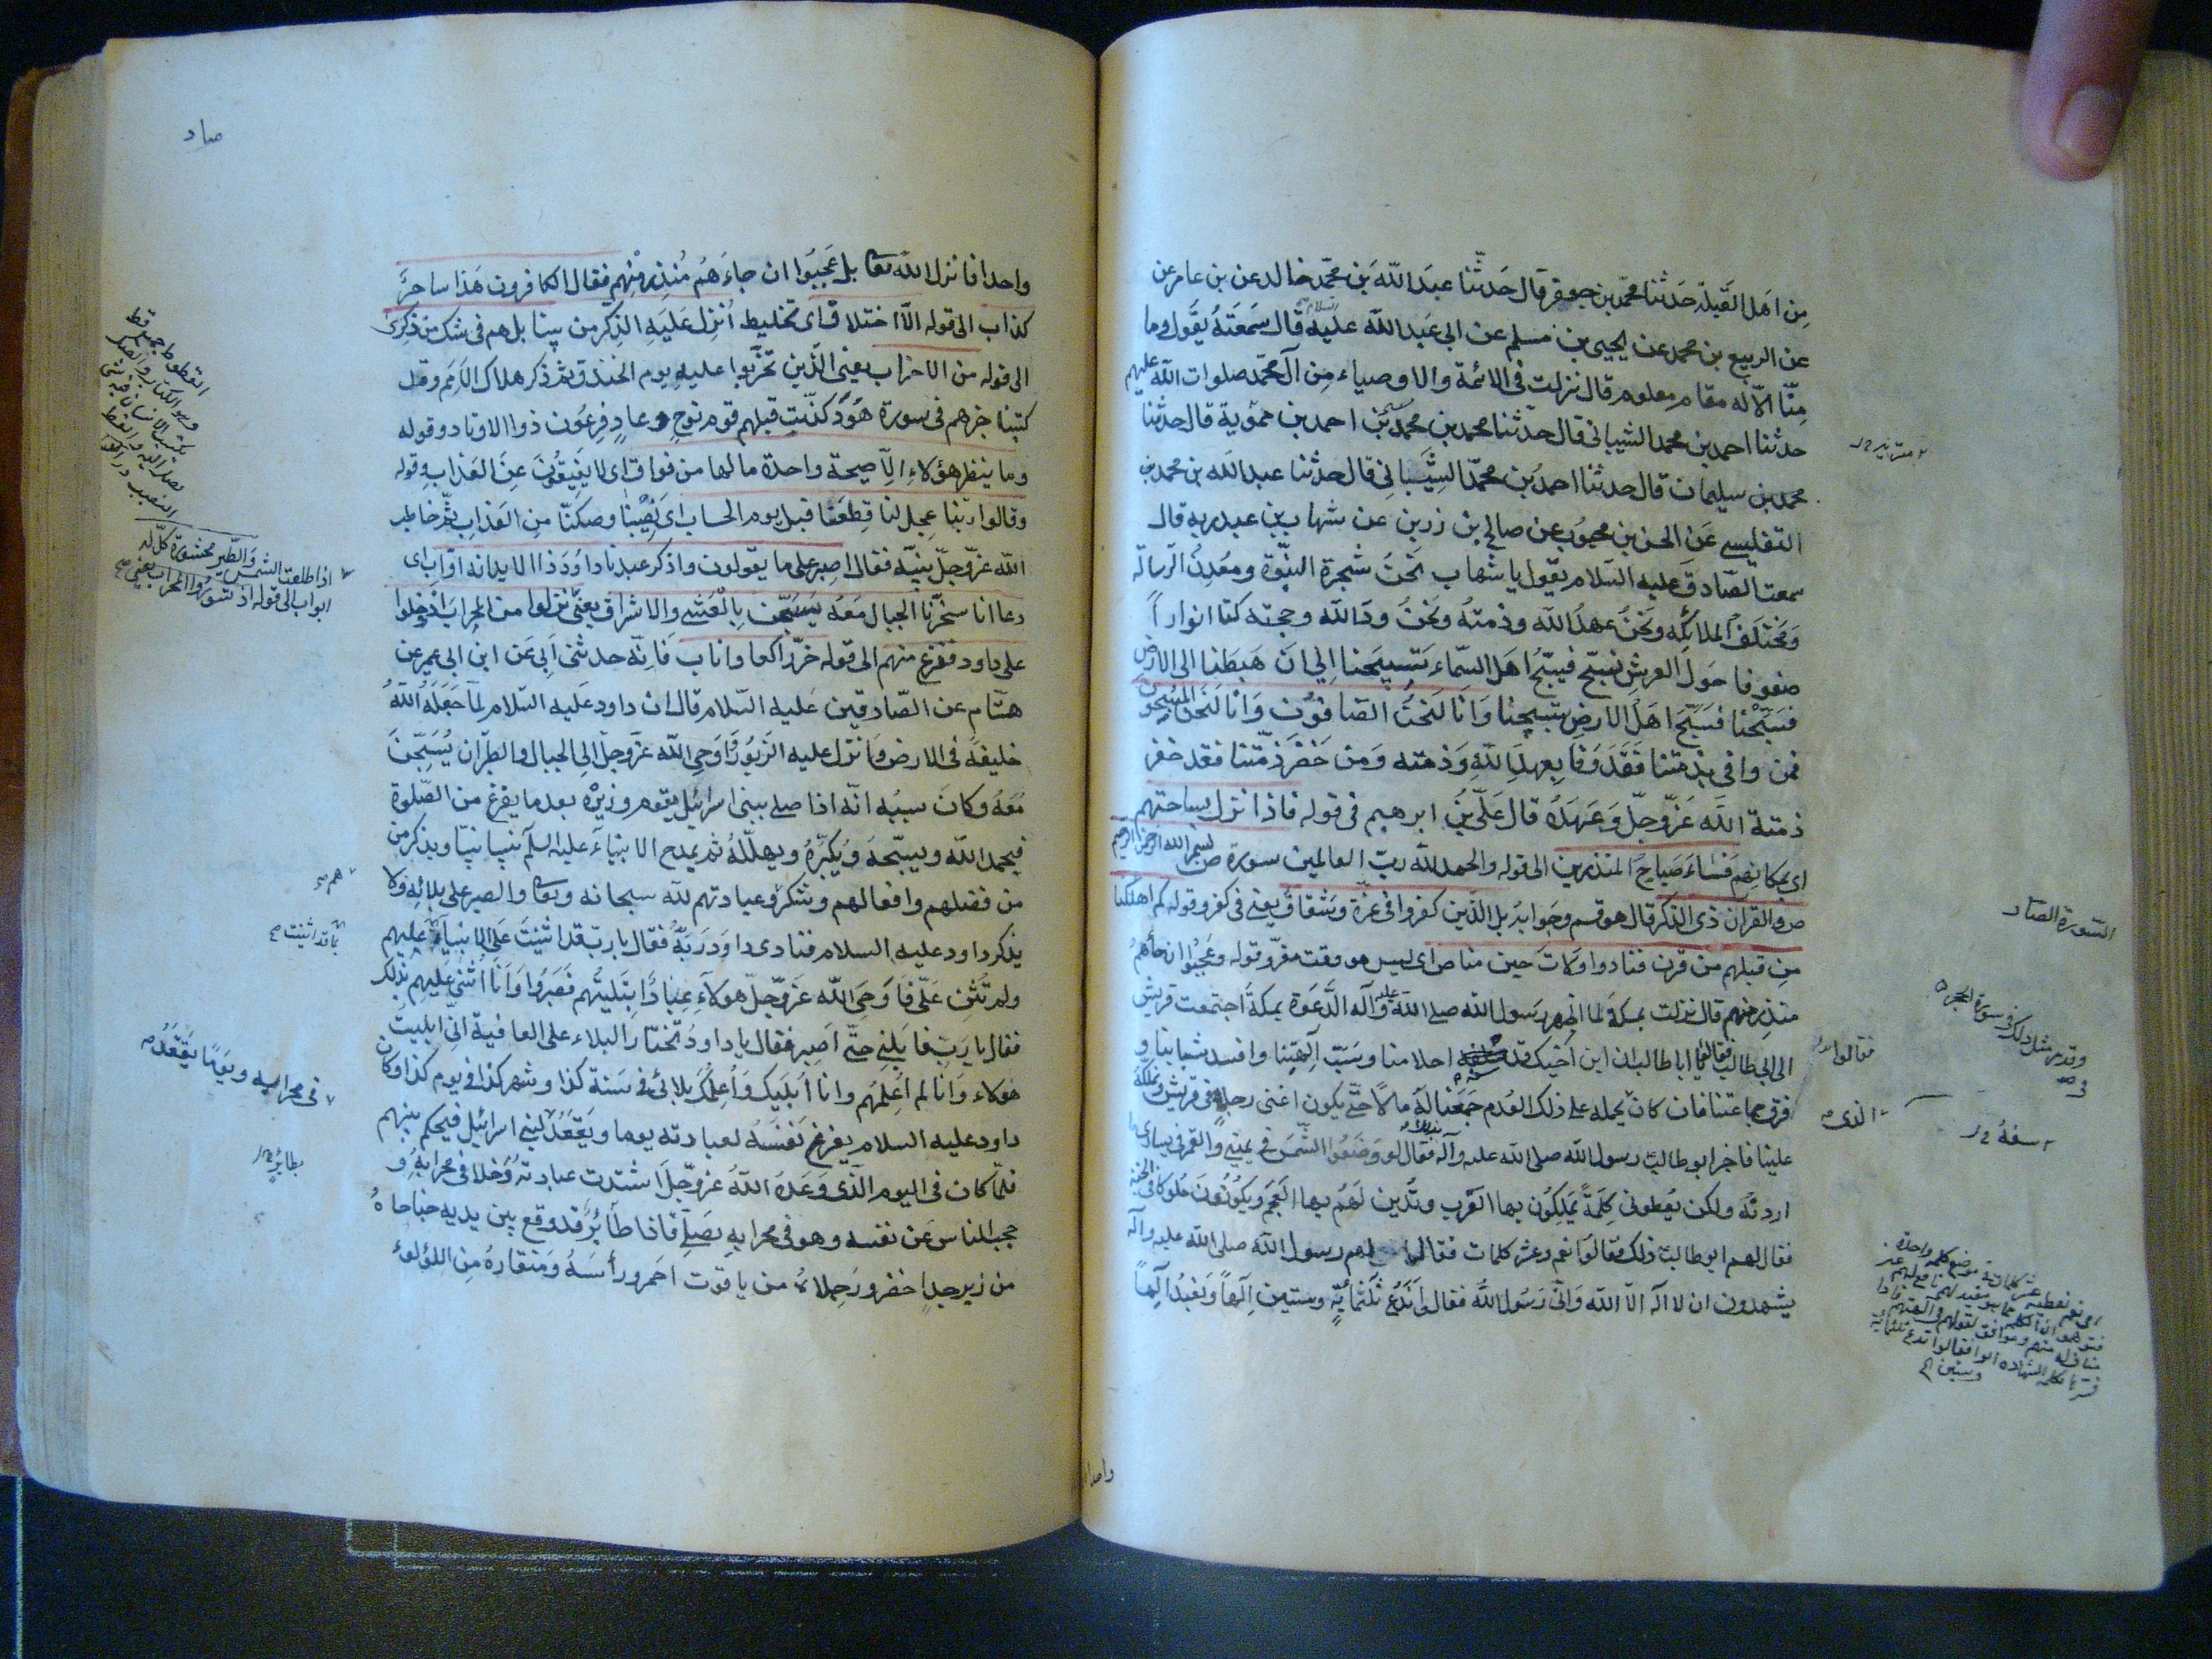 من اهل القبلة حدثنا محمد بن جعفر قال حدثنا عبد الله بن محمد خالد عن بن عامر عن
عن الربيع بن محمد عن يحيى بن مسلم عن ابى عبد الله عليه السلام قال سمعته يقول وما
منّا الّا له مقام معلوم قال نزلت فى الائمة والاوصياء من آل محمد صلوات الله عليهم
حدثنا احمد بن محمد الشيبانى قال حدثنا محمد بن محمد بن احمد بن مموية قال حدثنا
محمد بن سليمان قال حدثنا احمد بن محمد الشيبانى قال حدثنا عبد الله بن محمد بن
التفليسى عن الحسن بن محبوب عن صالح بن زرين عن شهاب بن عبد ربه قال
سمعت الصادق عليه السلام يقول يا شهاب نحن شجرة النبوّة ومعدن الرسالة
ومختلف الملائكه ونحن عهد الله وذمته ونحن ودّ الله وحجته كنّا انواراً
صفوفا حول العرش نسبّح فيسبّح اهل السماء بتسبيحنا الى ان هبطنا الى الارض
فسبّحنا فسبّح اهل الارض بتسبيحنا وانا لنحن الصافون وانا لنحن المسبحون
فمن وافى بذمتنا فقد وفا بعهد الله وذمته ومن خفر ذمّتنا فقد خفر
ذمتة الله عزّ وجلّ وعهده قال علىّ بن ابرهيم فى قوله فاذا نزل بساحتهم
اى بمكانهم فساء صباح المنذرين الى قوله والحمد لله ربّ العالمين سورة ص بسم الله الرحمن الرحيم
ص والقران ذى الذكر قال هو قسم وجوابه بل الذين كفروا فى عزّة وشقاق يعنى فى كفر وقوله كم اهلكنا
من قبلهم من قرن فنادوا ولات حين مناص اى ليس هو وقت مفرّ وقوله وعجبوا ان جاءهم
منذر منهم قال نزلت بمكة لما اظهر رسول الله صلى الله عليه وآله الدعوة بمكة اجتمعت قريش
الى ابى طالب فقالوا يا ابا طالب ان ابن اخيك قد سفه احلامنا وسبّ آلهتنا وافسد شبابنا و
فرق جماعتنا فان كان يحمله على ذلك العدم جمعنا له مالاً حتى يكون اغنى رجل فى قريش ونملكه
علينا فاخبر ابو طالب رسول الله صلى الله عليه وآله فقال لو وضعوا الشمس فى يمينى والقمر فى يسارى ما
اردته ولكن يعطونى كلمةً يملكون بها العرب وتدين لهم بها العجم ويكونون ملوكا فى الجنة
فقال لهم ابو طالب ذلك فقالوا نعم وعشر كلمات فقال لهم رسول الله صلى الله عليه وآله
يشهدون ان لا اله الا الله وانّى رسول الله فقالوا ندع ثلثمائة وستين الهاً ونعبد الهاً
السورة الصاد
وقد مر مثل ذلك فى سورة الحجر
فقالوا
الذى
سفه
واحدا
صاد
واحدا فانزل الله تعا بل عجبوا ان جاءهم منذر منهم فقال الكافرون هذا ساحر
كذاب الى قوله الّا اختلاق اى تخليط اُنزل عليه الذكر من بيننا بل هم فى شك من ذكرى
الى قوله من الاحزاب يعنى الّذين تحزّبوا عليه يوم الخندق ثم ذكر هلاك الامم وقد
كتبنا خبرهم فى سورة هود كذّبت قبلهم قوم نوح وعاد وفرعون ذوا الاوتاد وقوله
وما ينظر هؤلاء الّا صيحة واحدة ما لها من فواق اى لا يفيقون عن العذاب وقوله
وقالوا ربّنا عجل لنا قطّنا قبل يوم الحساب اى نصيبنا وصكنّا من العذاب ثم خاطب
الله عزّ وجلّ نبيّه فقال اصبر على ما يقولون واذكر عبدنا داوود ذا الايد انه اوّاب اى
دعا انا سخّرنا الجبال معه يسبّحن بالعشى والاشراق يعنى نزلوا من المحراب اذ دخلوا
على داود ففزع منهم الى قوله خرّ راكعا واناب فانّه حدثنى ابى عن ابن ابى عمير عن
هشام عن الصادقين عليه السلام قال ان داود عليه السلام لمّا جعله الله
خليفة فى الارض وانزل عليه الزبور واوحى الله عزّ وجلّ الى الجبال والطير ان يسبّحن
معه وكان سببه انّه اذا صلى ببنى اسرائيل يقوم وزيره بعد ما يفرغ من الصلوة
فيحمد الله ويسبّحه ويكبّره ويهلّله ثم يمدح الانبياء عليه السلم نبيا نبيا ويذكر من
من فضلهم وافعالهم وشكره وعبادتهم لله سبحانه وتعا والصبر على بلائه ولا
يذكر داود عليه السلام فنادى داود ربّه فقال يا ربّ قد اثنيت على الانبياء عليهم
ولم تثن علىّ فاوحى الله عزّ وجلّ هؤلاء عباد ابتليتهم فصبروا وانا اثنى عليهم بذلك
فقال يا ربّ فابلنى حتّى اصبر فقال يا داود تختار البلاء على العافية انى ابليت
هؤلاء وانا لم اعلمهم وانا ابليك واُعلمك بلائى فى سنة كذا وشهر كذا فى يوم كذا وكان
داود عليه السلام يفرغ نفسه لعبادته يوما ويقعد لبنى اسرائيل فيحكم بينهم
فلمّا كان فى اليوم الّذى وعده الله عزّ وجلّ اشتدت عبادته وخلا فى محرابه و
حجب الناس عن نفسه وهو فى محرابه يصلّى فاذا طائر قد وقع بين يديه جناحاه
من زبرجد اخضر ورجلاه من ياقوت احمر ورأسه ومنقاره من اللؤلؤ
اذا طلعت الشمس والطير محشورة كلّ له
اواب الى قوله اذ تسوّروا المحراب يعنى
هم
قد اثنيت
فى محرابه ويوماً يقعد
بطائر